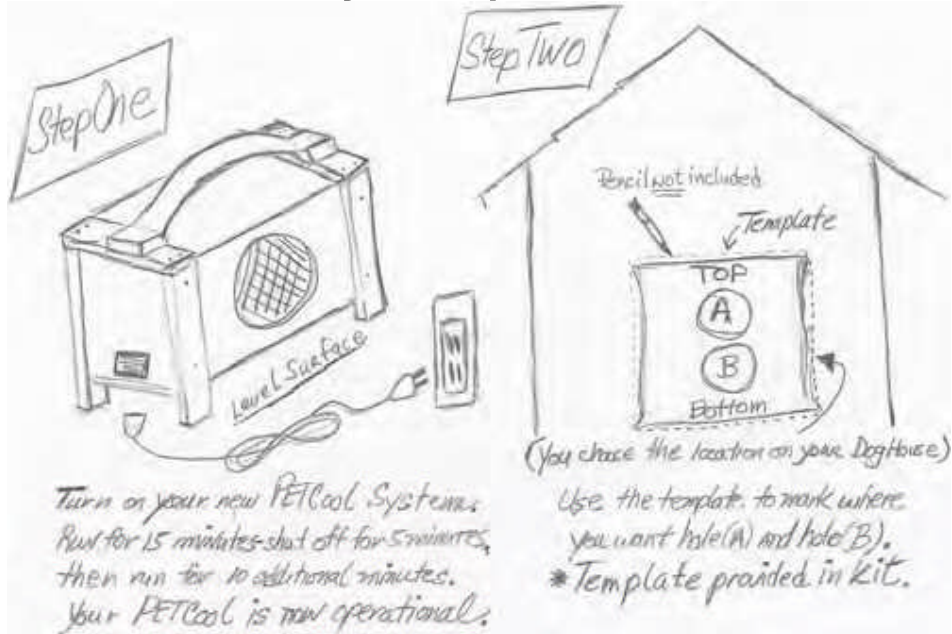 Step One
Level Surface
Turn on your new PETCool System.
Run for 15 minutes-shut off for 5 minutes,
then run for 10 additional minutes.
Your PETCool is now operational.
Step Two
Pencil not included
Template
TOP
A
B
Bottom
(You choose the location on your DogHouse)
Use the template to mark where
you want hole(A) and hole(B).
*Template provided in kit.